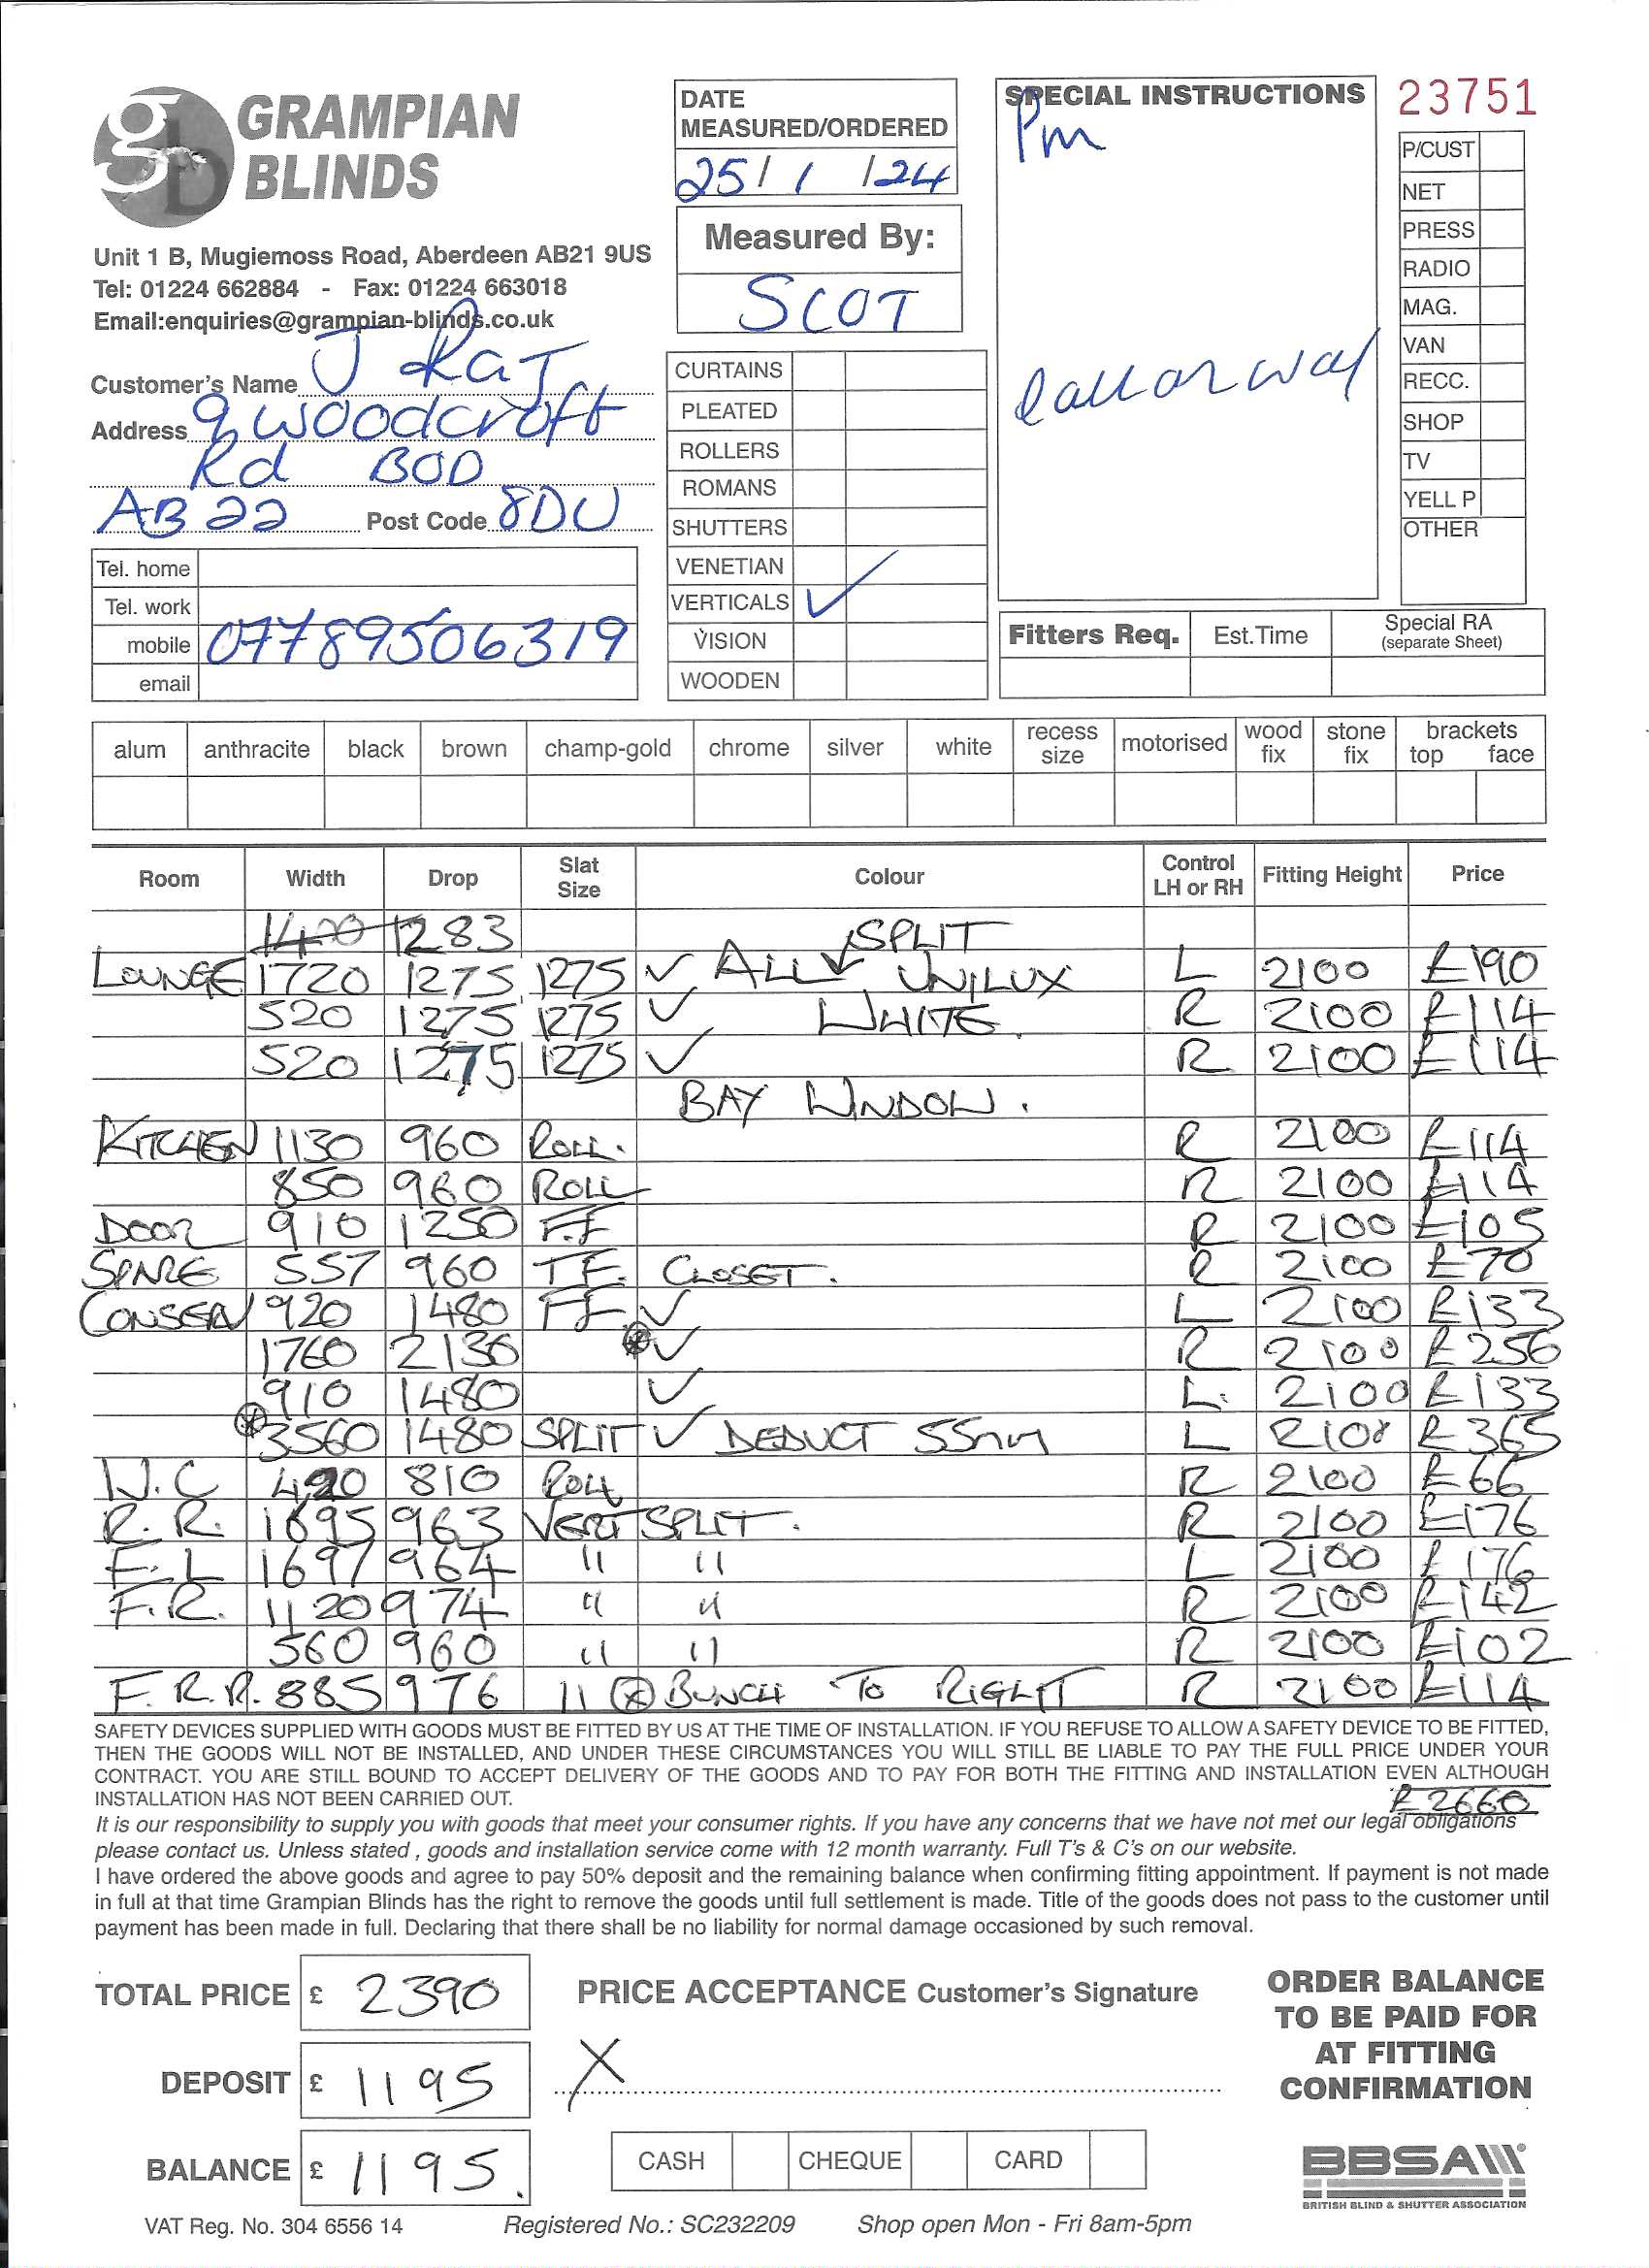 GRAMPIAN
BLINDS
Unit 1 B, Mugiemoss Road, Aberdeen AB21 9US
Tel: 01224 662884 - Fax: 01224 663018
Email:enquiries@grampian-blinds.co.uk
Customer's Name J Raj
Address 9 Woodcroft
Rd BOD
AB22 Post Code 8DU
Tel. home
Tel. work
mobile 07789506319
email
DATE
MEASURED/ORDERED
25/1/24
Measured By:
SCOT
CURTAINS
PLEATED
ROLLERS
ROMANS
SHUTTERS
VENETIAN
VERTICALS ✓
VISION
WOODEN
SPECIAL INSTRUCTIONS
Pm
Call on way
23751
P/CUST
NET
PRESS
RADIO
MAG.
VAN
RECC.
SHOP
TV
YELL P
OTHER
Fitters Req. Est.Time Special RA
(separate Sheet)
alum anthracite black brown champ-gold chrome silver white recess size motorised wood fix stone fix brackets top face
Room Width Drop Slat Size Colour Control LH or RH Fitting Height Price
1400 1283 SPLIT
LOUNGE 1720 1275 1275 ✓ ALL ✓ UNILUX L 2100 £190
520 1275 1275 ✓ WHITE. R 2100 £114
520 1275 1275 ✓ R 2100 £114
BAY WINDOW.
KITCHEN 1130 960 ROLL. R 2100 £114
850 960 ROLL R 2100 £114
DOOR 910 1250 F.F R 2100 £105
SPARE 557 960 T.F. CLOSET. R 2100 £70
CONSERV 920 1480 FF ✓ L 2100 £133
1760 2136 * ✓ R 2100 £256
910 1480 ✓ L. 2100 £133
* 3560 1480 SPLIT ✓ DEDUCT 55mm L 2100 £365
W.C 420 810 ROLL R 2100 £66
R.R. 1695 963 VERT SPLIT. R 2100 £176
F.L 1697 964 " " L 2100 £176
F.R. 1120 974 " " R 2100 £142
560 960 " " R 2100 £102
F.R.R. 885 976 " * BUNCH TO RIGHT R 2100 £114
SAFETY DEVICES SUPPLIED WITH GOODS MUST BE FITTED BY US AT THE TIME OF INSTALLATION. IF YOU REFUSE TO ALLOW A SAFETY DEVICE TO BE FITTED,
THEN THE GOODS WILL NOT BE INSTALLED, AND UNDER THESE CIRCUMSTANCES YOU WILL STILL BE LIABLE TO PAY THE FULL PRICE UNDER YOUR
CONTRACT. YOU ARE STILL BOUND TO ACCEPT DELIVERY OF THE GOODS AND TO PAY FOR BOTH THE FITTING AND INSTALLATION EVEN ALTHOUGH
INSTALLATION HAS NOT BEEN CARRIED OUT.
£2660
It is our responsibility to supply you with goods that meet your consumer rights. If you have any concerns that we have not met our legal obligations
please contact us. Unless stated , goods and installation service come with 12 month warranty. Full T's & C's on our website.
I have ordered the above goods and agree to pay 50% deposit and the remaining balance when confirming fitting appointment. If payment is not made
in full at that time Grampian Blinds has the right to remove the goods until full settlement is made. Title of the goods does not pass to the customer until
payment has been made in full. Declaring that there shall be no liability for normal damage occasioned by such removal.
TOTAL PRICE £ 2390
DEPOSIT £ 1195
BALANCE £ 1195.
PRICE ACCEPTANCE Customer's Signature
X
CASH CHEQUE CARD
ORDER BALANCE
TO BE PAID FOR
AT FITTING
CONFIRMATION
BBSA
BRITISH BLIND & SHUTTER ASSOCIATION
VAT Reg. No. 304 6556 14 Registered No.: SC232209 Shop open Mon - Fri 8am-5pm